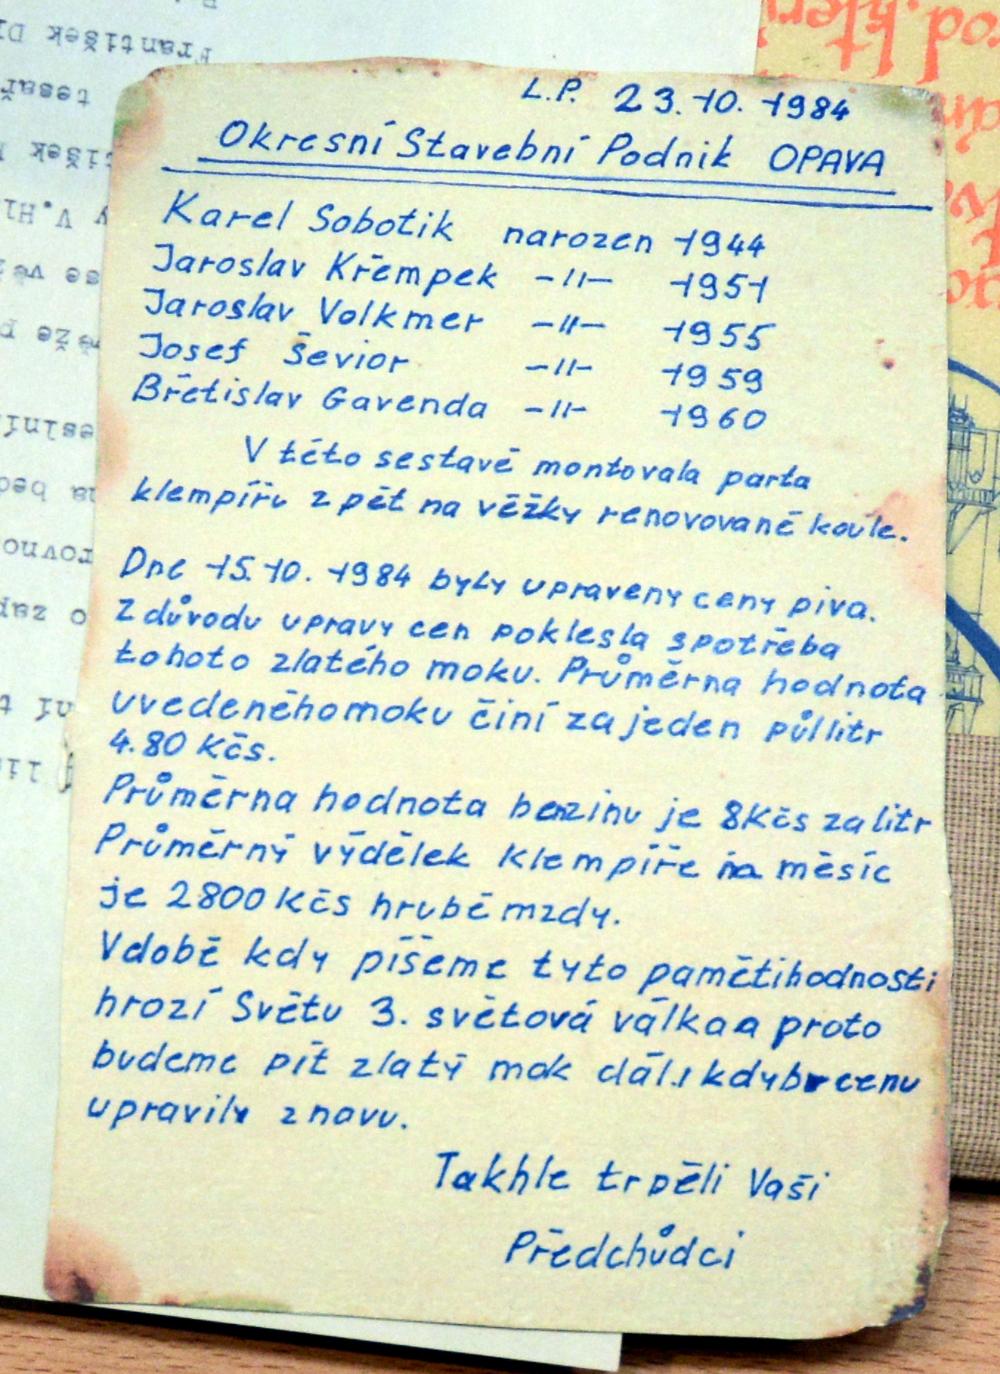 L.P. 23.10. 1984
Okresní Stavební Podnik OPAVA
Karel Sobotik narozen 1944
Jaroslav Křempek -11- 1951
Jaroslav Volkmer -11- 1955
Josef Ševior -11- 1959
Břetislav Gavenda -11- 1960
V této sestavě montovala parta
klempířu zpět na věžky renovované koule.
Dne 15.10. 1984 byly upraveny ceny piva.
Z důvodu upravy cen poklesla spotřeba
tohoto zlatého moku. Průměrna hodnota
uvedenéhomoku činí za jeden půllitr
4.80 Kčs.
Průměrna hodnota benzinu je 8Kčs za litr
Průměrný výdělek klempíře na měsíc
je 2800 Kčs hrubé mzdy.
Vdobě kdy píšeme tyto pamětihodnosti
hrozí Světu 3. světová válka a proto
budeme pít zlatý mok dál i kdyby cenu
upravily znovu.
Takhle trpěli Vaši
Předchůdci
František
tesař
V.Hl
se vě
že p